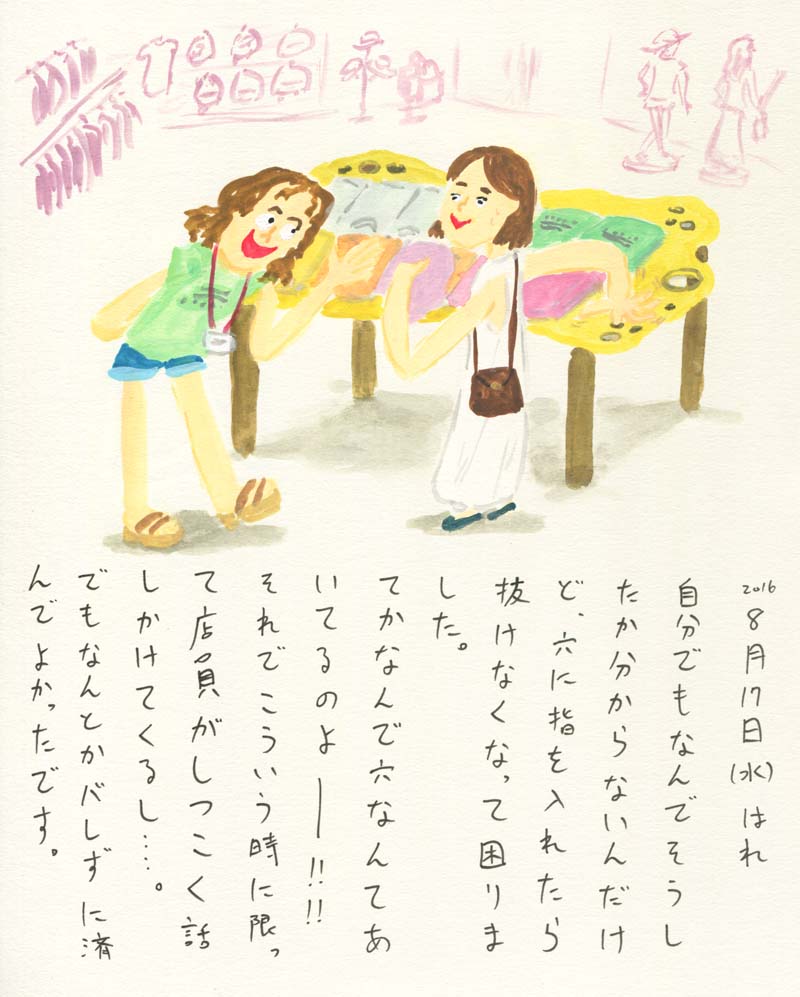 2016 8月17日(水)はれ
自分でもなんでそうし
たか分からないんだけ
ど、穴に指を入れたら
抜けなくなって困りま
した。
てかなんで穴なんてあ
いてるのよ――!!!!
それでこういう時に限っ
て店員がしつこく話
しかけてくるし……。
でもなんとかバレずに済
んでよかったです。